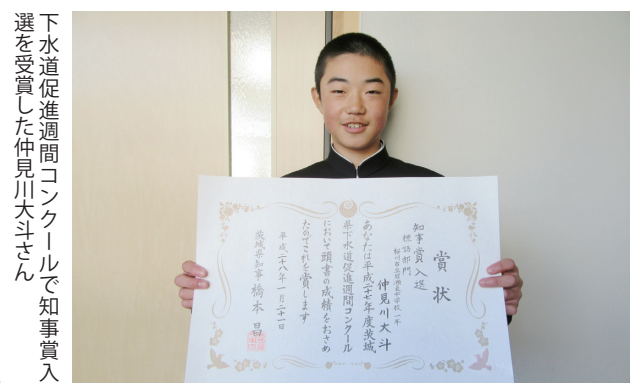 下水道促進週間コンクールで知事賞入
選を受賞した仲見川大斗さん
賞状
知事賞入選
標語部門
仲見川大斗
あなたは平成二十七年度茨城
県下水道促進週間コンクール
において頭書の成績をおさめ
たのでこれを賞します
平成二十八年一月二十一日
茨城県知事 橋本昌